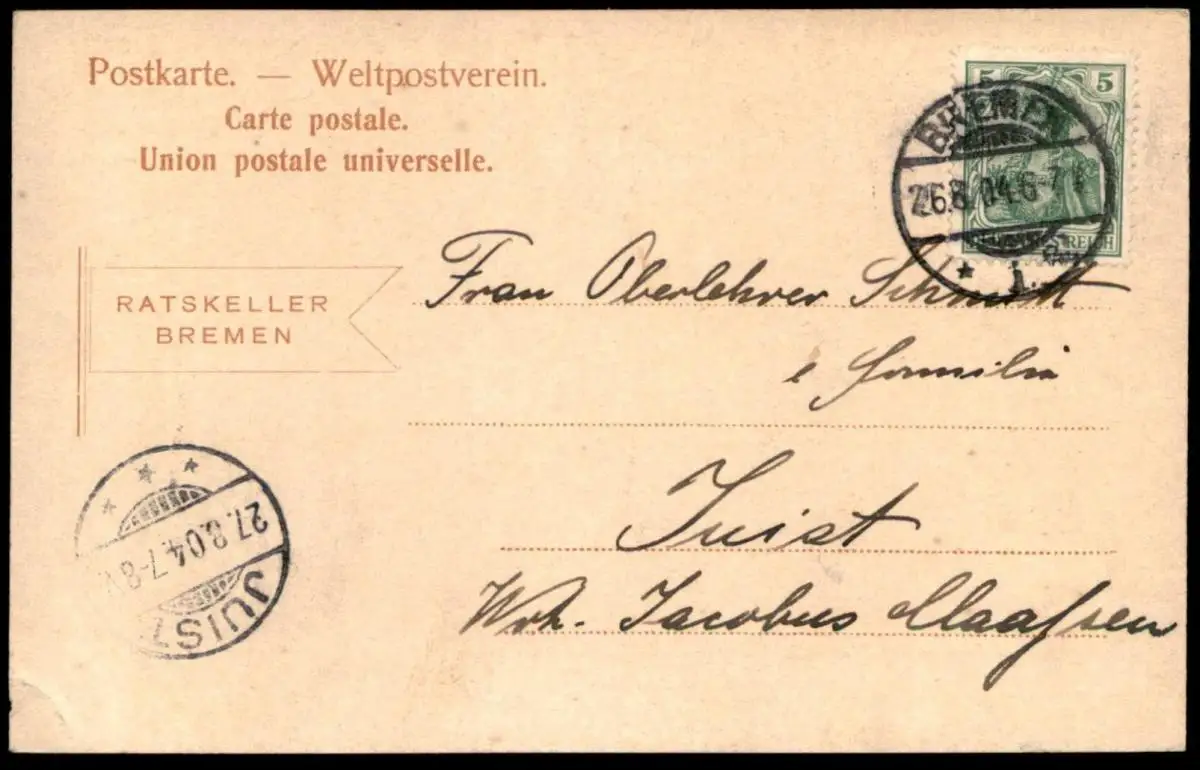 Postkarte. — Weltpostverein.
Carte postale.
Union postale universelle.
5 5
BREMEN
26.8.04.6-7
1 * 1.
REICH
RATSKELLER
BREMEN
Frau Oberlehrer Schmidt
e Familie
Juist
Woh. Jacobus Maaſsen
27.8.04.7-8V.
JUIST